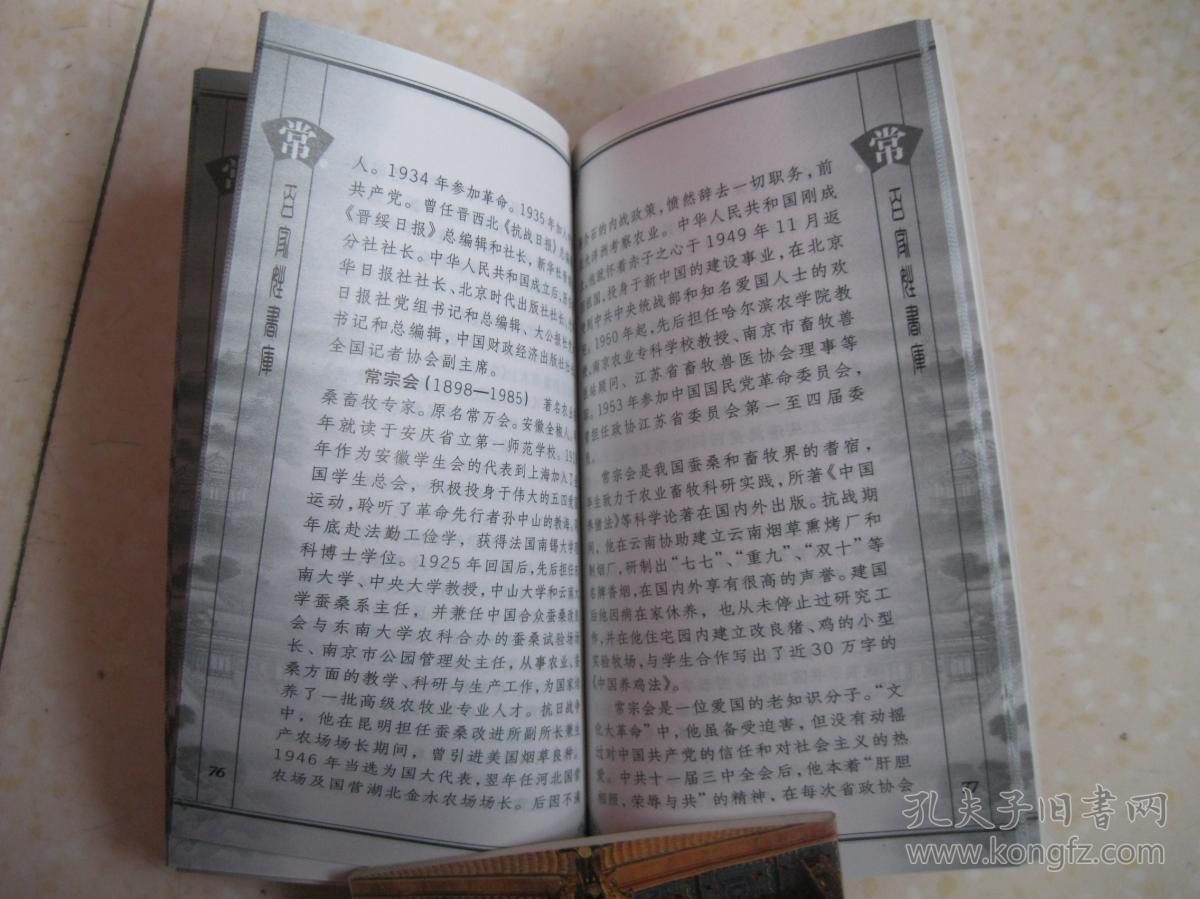 常
百家姓書庫
人。1934年参加革命。1935年加入
共产党。曾任晋西北《抗战日报》总编辑
《晋绥日报》总编辑和社长,新华社晋绥
分社社长。中华人民共和国成立后,历任
华日报社社长、北京时代出版社社长、
日报社党组书记和总编辑、大公报社党
书记和总编辑,中国财政经济出版社社
全国记者协会副主席。
常宗会(1898—1985) 著名农业
桑畜牧专家。原名常万会。安徽全椒人。
年就读于安庆省立第一师范学校。191
年作为安徽学生会的代表到上海加入了
国学生总会,积极投身于伟大的五四爱国
运动,聆听了革命先行者孙中山的教诲。
年底赴法勤工俭学,获得法国南锡大学
科博士学位。1925年回国后,先后担任
南大学、中央大学教授,中山大学和云南大
学蚕桑系主任,并兼任中国合众蚕桑改
会与东南大学农科合办的蚕桑试验场场
长、南京市公园管理处主任,从事农业、蚕
桑方面的教学、科研与生产工作,为国家培
养了一批高级农牧业专业人才。抗日战争
中,他在昆明担任蚕桑改进所副所长兼
产农场场长期间,曾引进美国烟草良种。
1946年当选为国大代表,翌年任河北国营
农场及国营湖北金水农场场长。后因不满
76
常
百家姓書庫
介石的内战政策,愤然辞去一切职务,前
大洋洲考察农业。中华人民共和国刚成
,他就怀着赤子之心于1949年11月返
祖国,投身于新中国的建设事业,在北京
到中共中央统战部和知名爱国人士的欢
。1950年起,先后担任哈尔滨农学院教
、南京农业专科学校教授、南京市畜牧兽
站顾问、江苏省畜牧兽医协会理事等
。1953年参加中国国民党革命委员会,
担任政协江苏省委员会第一至四届委
。
常宗会是我国蚕桑和畜牧界的耆宿,
毕生致力于农业畜牧科研实践,所著《中国
养猪法》等科学论著在国内外出版。抗战期
间,他在云南协助建立云南烟草熏烤厂和
制烟厂,研制出“七七”、“重九”、“双十”等
名牌香烟,在国内外享有很高的声誉。建国
后他因病在家休养,也从未停止过研究工
作,并在他住宅园内建立改良猪、鸡的小型
实验牧场,与学生合作写出了近30万字的
《中国养鸡法》。
常宗会是一位爱国的老知识分子。“文
化大革命”中,他虽备受迫害,但没有动摇
过对中国共产党的信任和对社会主义的热
爱。中共十一届三中全会后,他本着“肝胆
相照,荣辱与共”的精神,在每次省政协会
77
常
孔夫子旧书网
www.kongfz.com